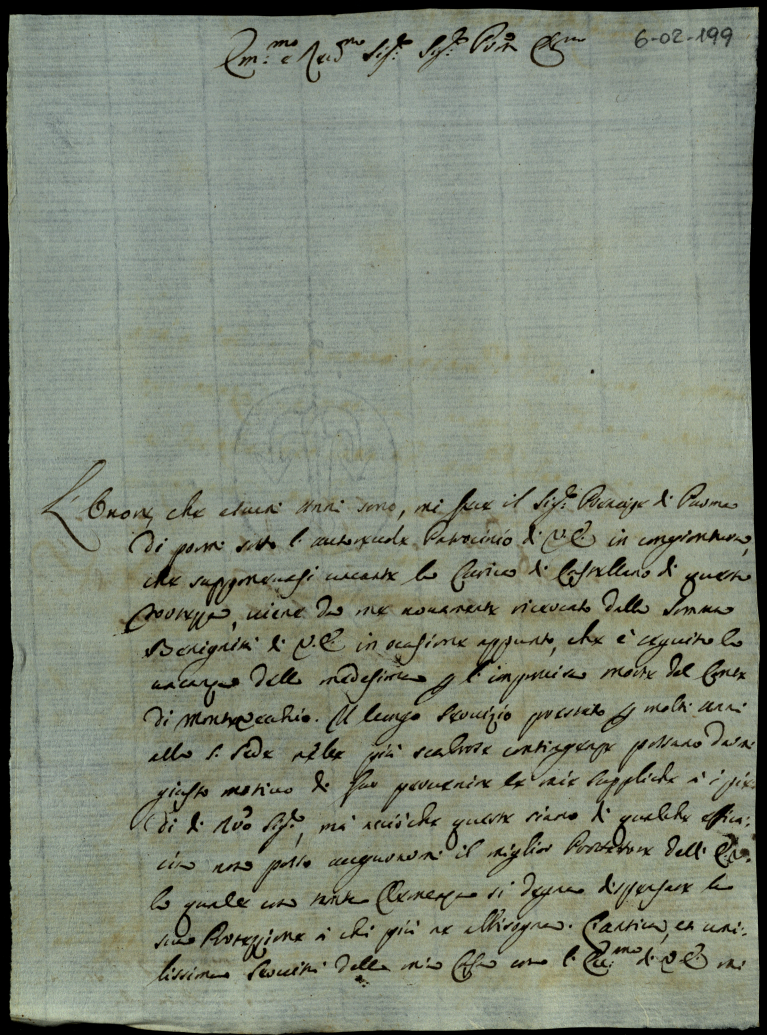 6-02-199
Em:mo e Rev:mo Sig:r Sig:r
L'Onore, che alcuni anni sono, mi fece il Sig:r Principe di Parma
di pormi sotto l'autorevole Patrocinio di V.E. in congiontura,
che supponevasi vacante la Carica di Castellano di questa
Fortezza, viene da me novamente ricercato dalla somma
Benignità di V.E. in occasione appunto, che è seguita la
vacanza della medesima p l'improvisa morte del Conte
di Montevecchio. Il lungo servizio prestato p molti anni
alla S. Sede nelle più scabrose contingenze possono darmi
giusto motivo di far pervenire le mie suppliche à i pie-
di di N'ro Sig:re, mà acciòche queste siano di qualche effica-
cia non posso augurarmi il miglior Protettore dell' E.V.
la quale con tanta Clemenza si degna dispensare la
sua Protezzione à chi più ne abbisogna. L'antica, et umi-
lissima Servitù della mia Casa con l' di V.E. mi